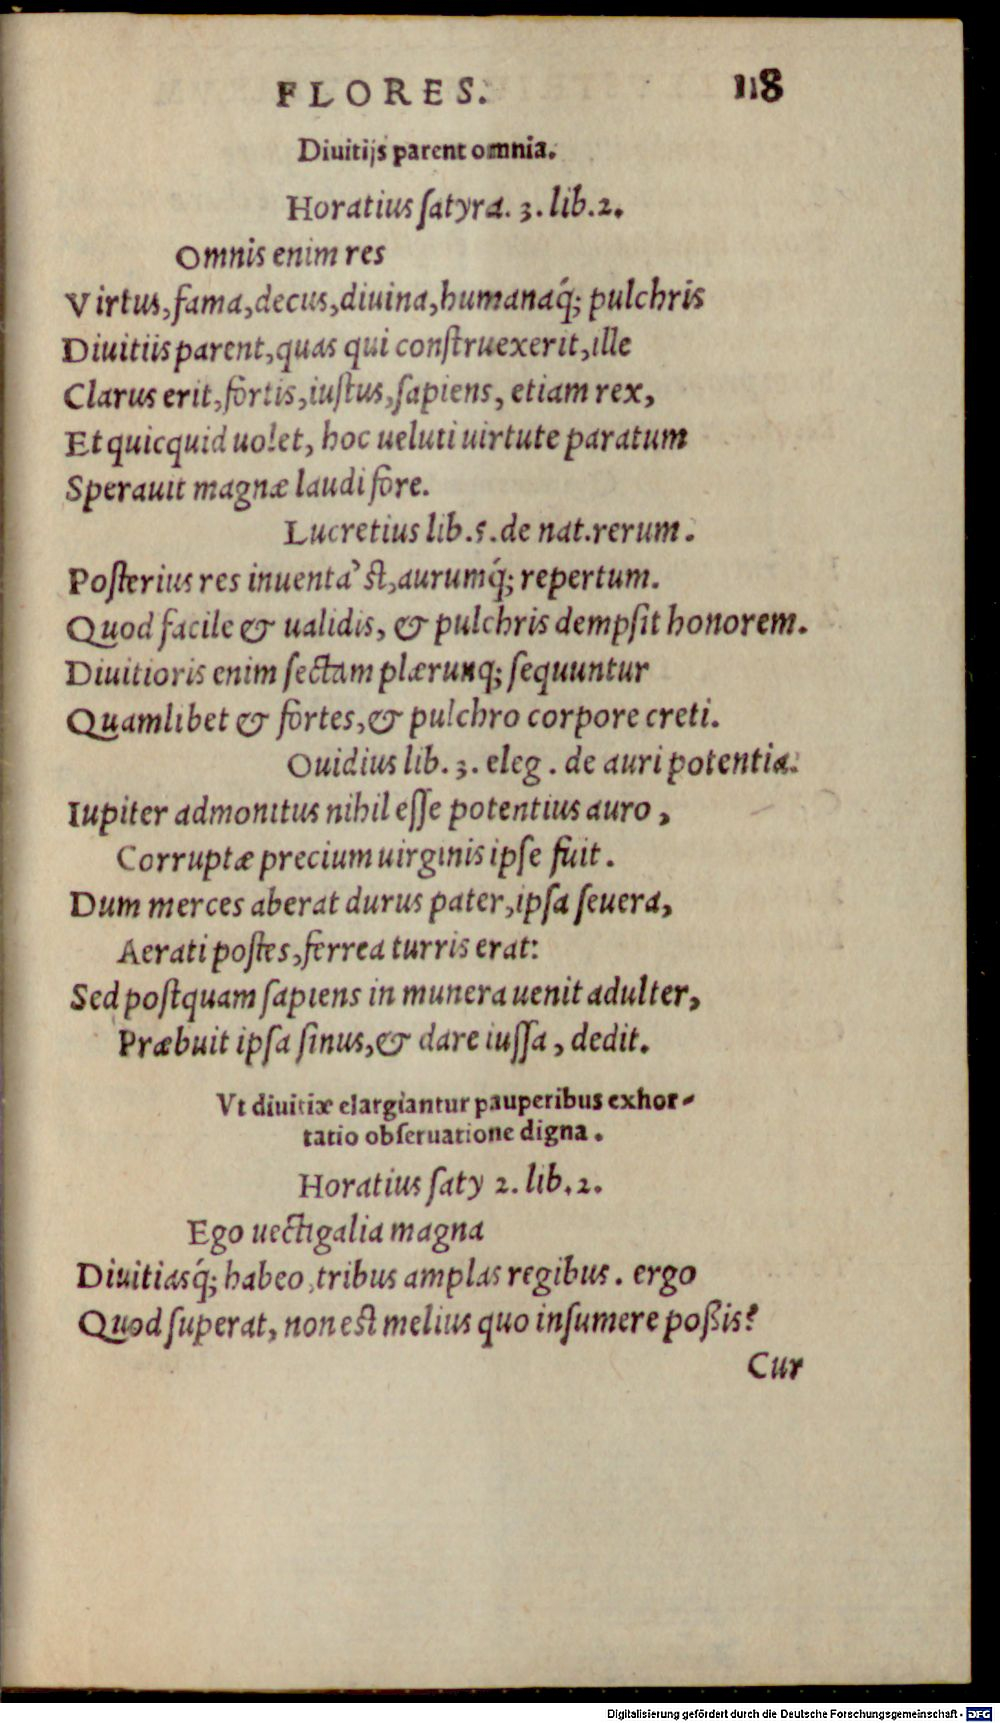 FLORES. 118
Diuitijs parent omnia.
Horatius ſatyra. 3. lib. 2.
Omnis enim res
Virtus, fama, decus, diuina, humanaq́; pulchris
Diuitiis parent, quas qui conſtruexerit, ille
Clarus erit, fortis, iuſtus, ſapiens, etiam rex,
Et quicquid uolet, hoc ueluti uirtute paratum
Sperauit magnæ laudi fore.
Lucretius lib. 5. de nat. rerum.
Poſterius res inuenta' ſt, aurumq́; repertum.
Quod facile & ualidis, & pulchris dempſit honorem.
Diuitioris enim ſectam plærunq; ſequuntur
Quamlibet & fortes, & pulchro corpore creti.
Ouidius lib. 3. eleg. de auri potentia.
Iupiter admonitus nihil eſſe potentius auro,
Corruptæ precium uirginis ipſe fuit.
Dum merces aberat durus pater, ipſa ſeuera,
Aerati poſtes, ferrea turris erat:
Sed poſtquam ſapiens in munera uenit adulter,
Præbuit ipſa ſinus, & dare iuſſa, dedit.
Vt diuitiæ elargiantur pauperibus exhor-
tatio obſeruatione digna.
Horatius ſaty 2. lib. 2.
Ego uectigalia magna
Diuitiasq́; habeo, tribus amplas regibus. ergo
Quod ſuperat, non eſt melius quo inſumere poßis?
Cur
Digitalisierung gefördert durch die Deutsche Forschungsgemeinschaft - DFG